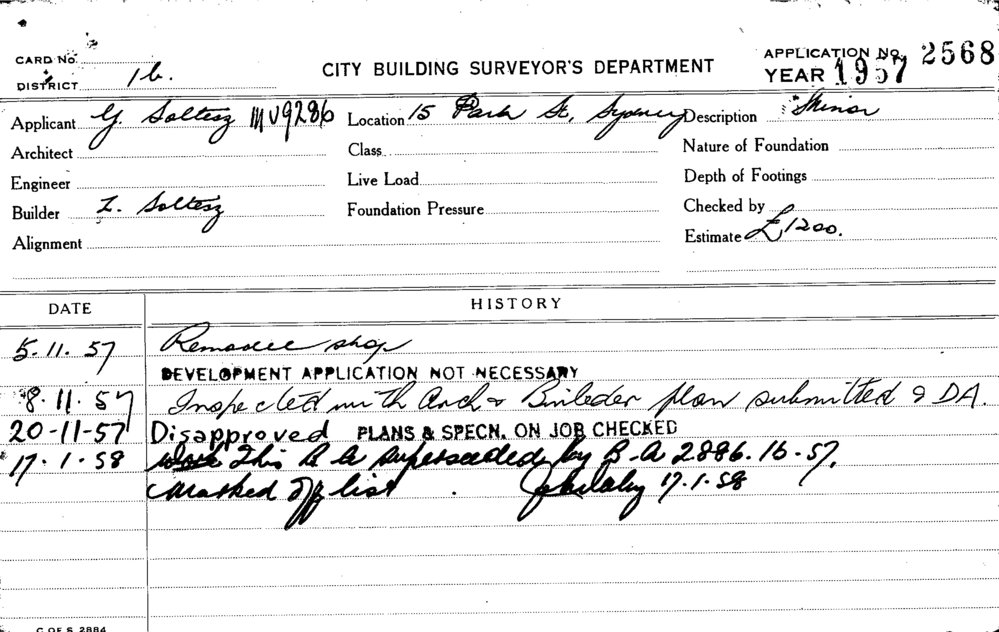 CARD No.
DISTRICT 16.
CITY BUILDING SURVEYOR'S DEPARTMENT
APPLICATION No. 2568
YEAR 1957
Applicant G Soltesz MU9286 Location 15 Park St, Sydney Description Minor
Architect Class Nature of Foundation
Engineer Live Load Depth of Footings
Builder Z. Soltesz Foundation Pressure Checked by
Alignment Estimate £1200.
DATE HISTORY
5.11.57 Remodel shop
DEVELOPMENT APPLICATION NOT NECESSARY
8.11.57 Inspected with Arch & Builder plan submitted & DA.
20-11-57 Disapproved PLANS & SPECN. ON JOB CHECKED
17.1.58 This B A superseeded by B.A 2886.16-57.
Marked off list. 17.1.58
C OF S 2884